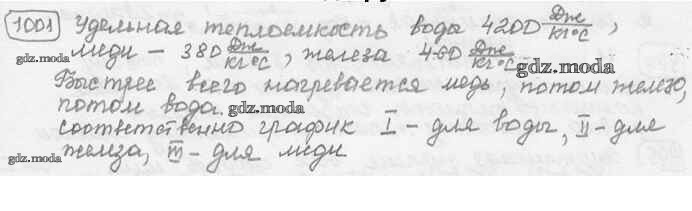 1001 Удельная теплоемкость вода 4200 Дж/кг°С,
gdz.moda меди – 380 Дж/кг°С, железа 460 Дж/кг°С gdz.moda
Быстрее всего нагревается медь, потом железо,
потом вода. gdz.moda
соответственно график I – для воды, II – для
gdz.moda железа, III – для меди